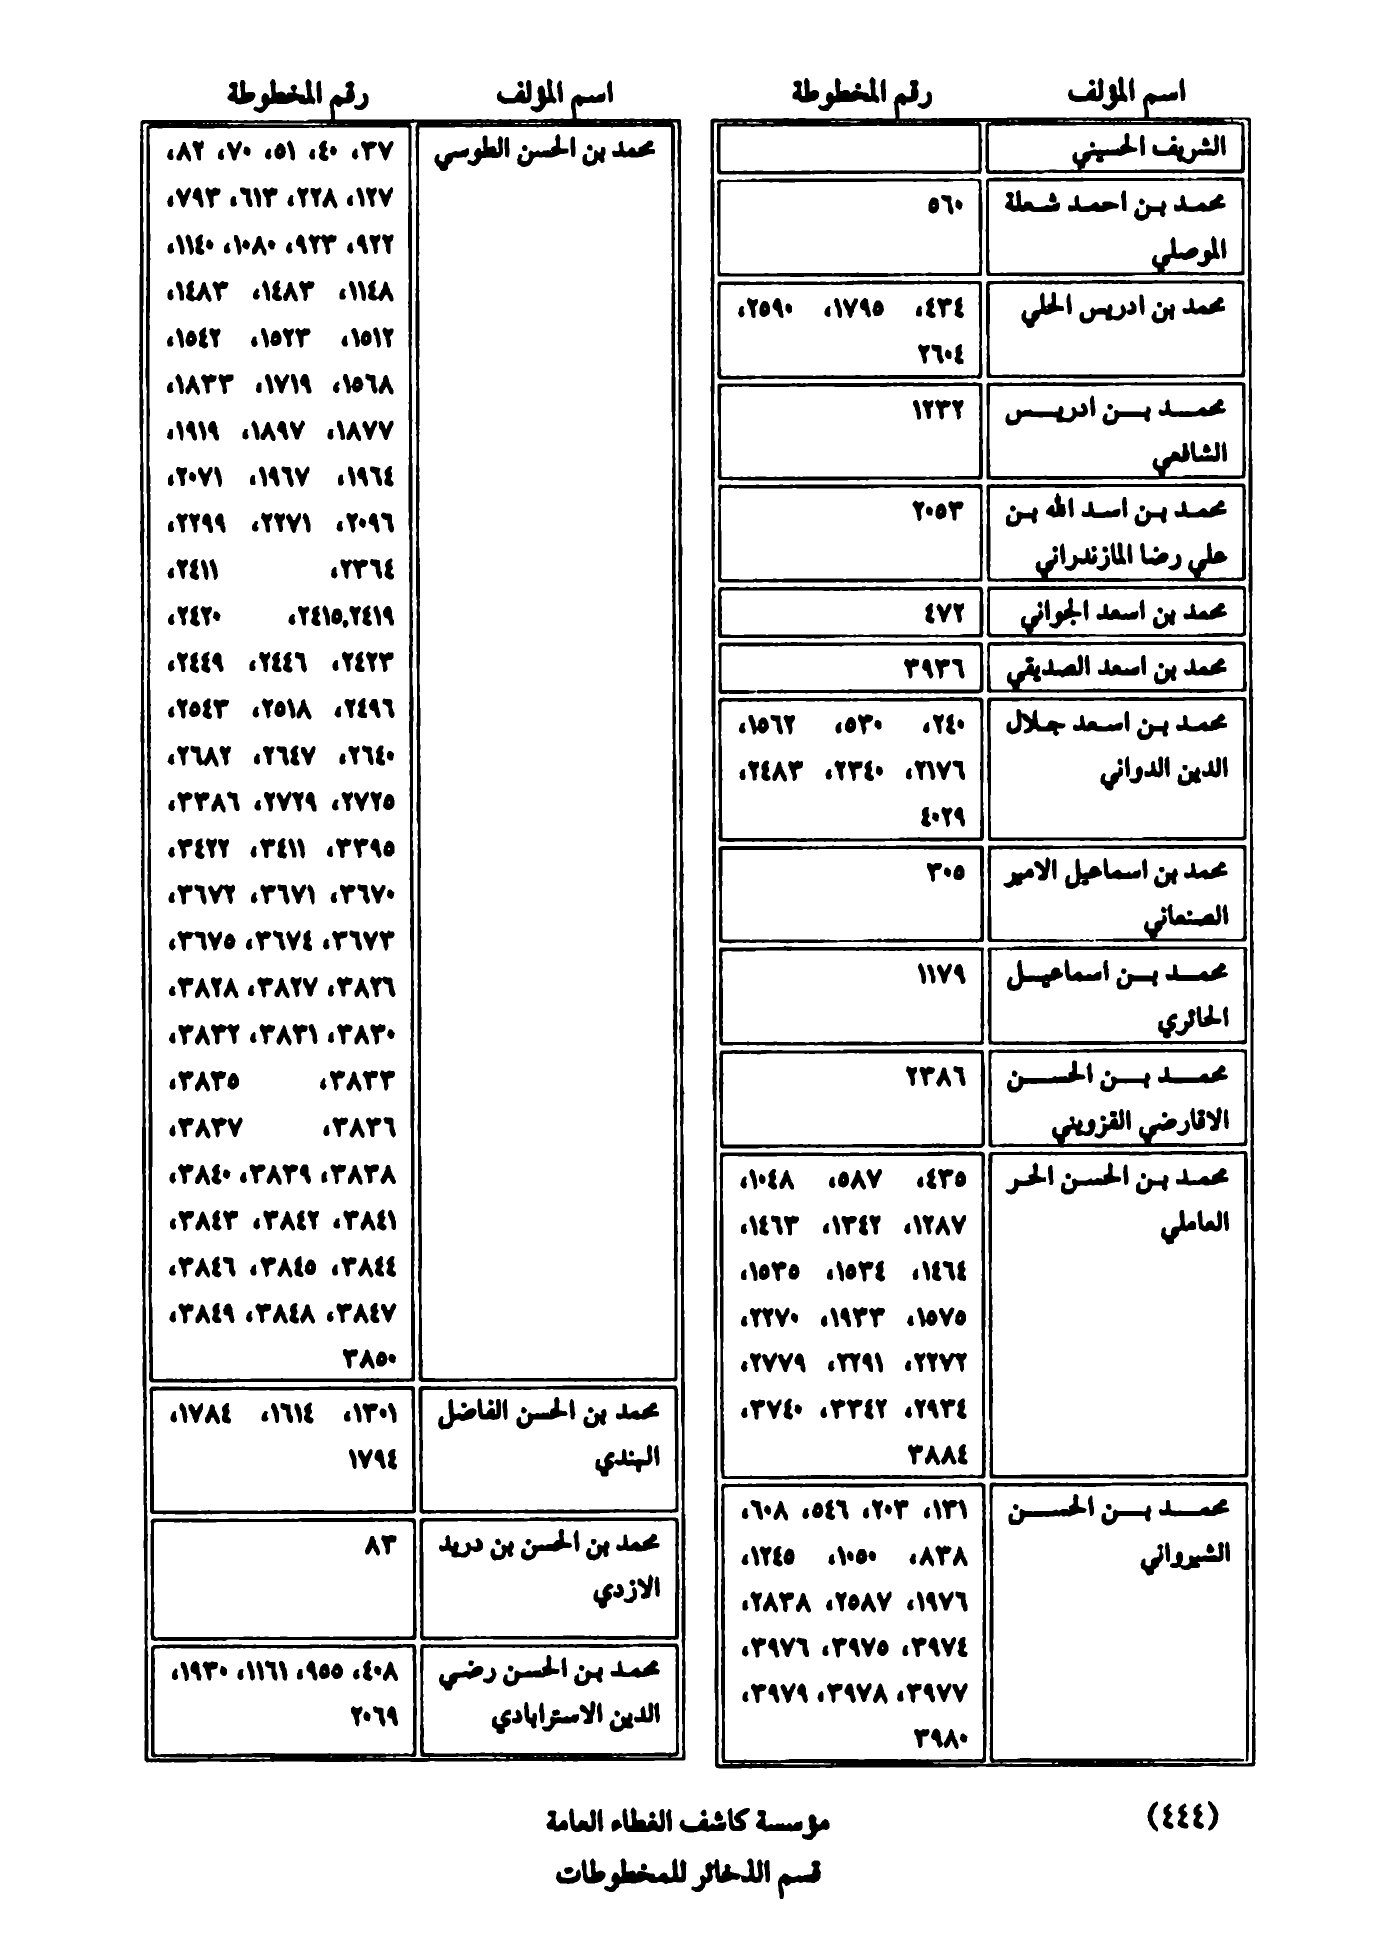 اسم المؤلف رقم المخطوطة
الشريف الحسيني
محمد بن احمد شعلة ٥٦٠
الموصلي
محمد بن ادريس الحلي ٤٣٤، ١٧٩٥، ٢٥٩٠،
٢٦٠٤
محمد بن ادريس ١٢٣٢
الشافعي
محمد بن اسد الله بن ٢٠٥٣
علي رضا المازندراني
محمد بن اسعد الجواني ٤٧٢
محمد بن اسعد الصديقي ٣٩٣٦
محمد بن اسعد جلال ٢٤٠، ٥٣٠، ١٥٦٢،
الدين الدواني ٢١٧٦، ٢٣٤٠، ٢٤٨٣،
٤٠٢٩
محمد بن اسماعيل الامير ٣٠٥
الصنعاني
محمد بن اسماعيل ١١٧٩
الحائري
محمد بن الحسن ٢٣٨٦
الاقارضي القزويني
محمد بن الحسن الحر ٤٣٥، ٥٨٧، ١٠٤٨،
العاملي ١٢٨٧، ١٣٤٢، ١٤٦٣،
١٤٦٤، ١٥٣٤، ١٥٣٥،
١٥٧٥، ١٩٣٣، ٢٢٧٠،
٢٢٧٢، ٢٢٩١، ٢٧٧٩،
٢٩٣٤، ٣٣٤٢، ٣٧٤٠،
٣٨٨٤
محمد بن الحسن ١٣١، ٢٠٣، ٥٤٦، ٦٠٨،
الشيرواني ٨٣٨، ١٠٥٠، ١٢٤٥،
١٩٧٦، ٢٥٨٧، ٢٨٣٨،
٣٩٧٤، ٣٩٧٥، ٣٩٧٦،
٣٩٧٧، ٣٩٧٨، ٣٩٧٩،
٣٩٨٠
اسم المؤلف رقم المخطوطة
محمد بن الحسن الطوسي ٣٧، ٤٠، ٥١، ٧٠، ٨٢،
١٢٧، ٢٢٨، ٦١٣، ٧٩٣،
٩٢٢، ٩٢٣، ١٠٨٠، ١١٤٠،
١١٤٨، ١٤٨٣، ١٤٨٣،
١٥١٢، ١٥٢٣، ١٥٤٢،
١٥٦٨، ١٧١٩، ١٨٣٣،
١٨٧٧، ١٨٩٧، ١٩١٩،
١٩٦٤، ١٩٦٧، ٢٠٧١،
٢٠٩٦، ٢٢٧١، ٢٢٩٩،
٢٣٦٤، ٢٤١١،
٢٤١٥,٢٤١٩، ٢٤٢٠،
٢٤٢٣، ٢٤٤٦، ٢٤٤٩،
٢٤٩٦، ٢٥١٨، ٢٥٤٣،
٢٦٤٠، ٢٦٤٧، ٢٦٨٢،
٢٧٢٥، ٢٧٢٩، ٣٣٨٦،
٣٣٩٥، ٣٤١١، ٣٤٢٢،
٣٦٧٠، ٣٦٧١، ٣٦٧٢،
٣٦٧٣، ٣٦٧٤، ٣٦٧٥،
٣٨٢٦، ٣٨٢٧، ٣٨٢٨،
٣٨٣٠، ٣٨٣١، ٣٨٣٢،
٣٨٣٣، ٣٨٣٥،
٣٨٣٦، ٣٨٣٧،
٣٨٣٨، ٣٨٣٩، ٣٨٤٠،
٣٨٤١، ٣٨٤٢، ٣٨٤٣،
٣٨٤٤، ٣٨٤٥، ٣٨٤٦،
٣٨٤٧، ٣٨٤٨، ٣٨٤٩،
٣٨٥٠
محمد بن الحسن الفاضل ١٣٠١، ١٦١٤، ١٧٨٤،
الهندي ١٧٩٤
محمد بن الحسن بن دريد ٨٣
الازدي
محمد بن الحسن رضي ٤٠٨، ٩٥٥، ١١٦١، ١٩٣٠،
الدين الاسترابادي ٢٠٦٩
(٤٤٤)
مؤسسة كاشف الغطاء العامة
قسم الذخائر للمخطوطات